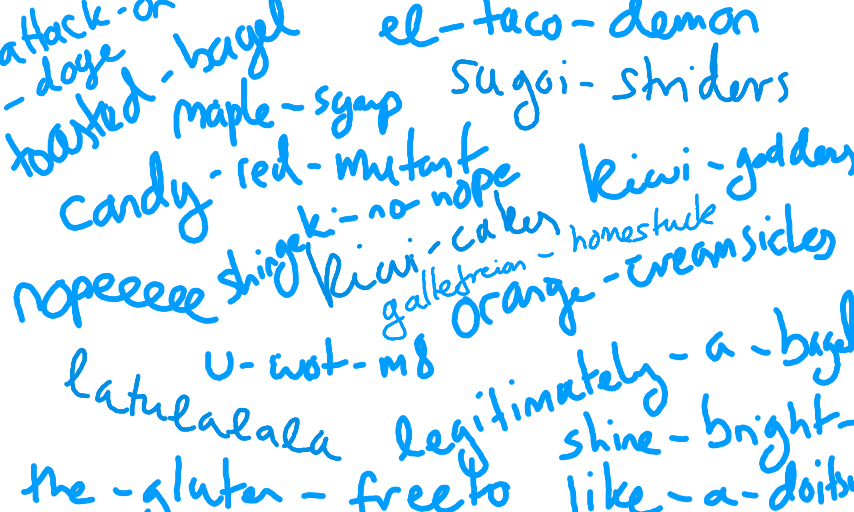 attack-on
-doge
el-taco-demon
toasted-bagel
sugoi-striders
maple-syrup
candy-red-mutant
kiwi-goddess
shingeki-no-nope
kiwi-cakes
gallefreian-homestuck
nopeeeee
orange-creamsicles
u-wot-m8
latulalala
legitimately-a-bagel
shine-bright-
like-a-doitsu
the-gluten-freeto